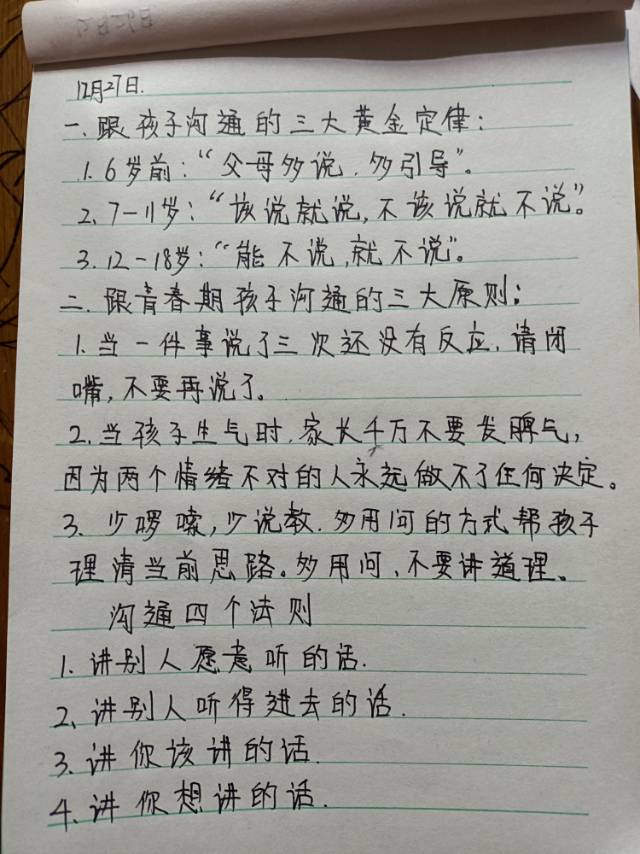 12月27日.
一、跟孩子沟通的三大黄金定律：
1. 6岁前：“父母多说、多引导”。
2、7—11岁：“该说就说，不该说就不说”。
3. 12—18岁：“能不说，就不说”。
二、跟青春期孩子沟通的三大原则：
1. 当一件事说了三次还没有反应、请闭
嘴，不要再说了。
2. 当孩子生气时、家长千万不要发脾气，
因为两个情绪不对的人永远做不了任何决定。
3. 少啰嗦，少说教、多用问的方式帮孩子
理清当前思路。多用问、不要讲道理。
沟通四个法则
1. 讲别人愿意听的话.
2、讲别人听得进去的话.
3. 讲你该讲的话.
4. 讲你想讲的话.